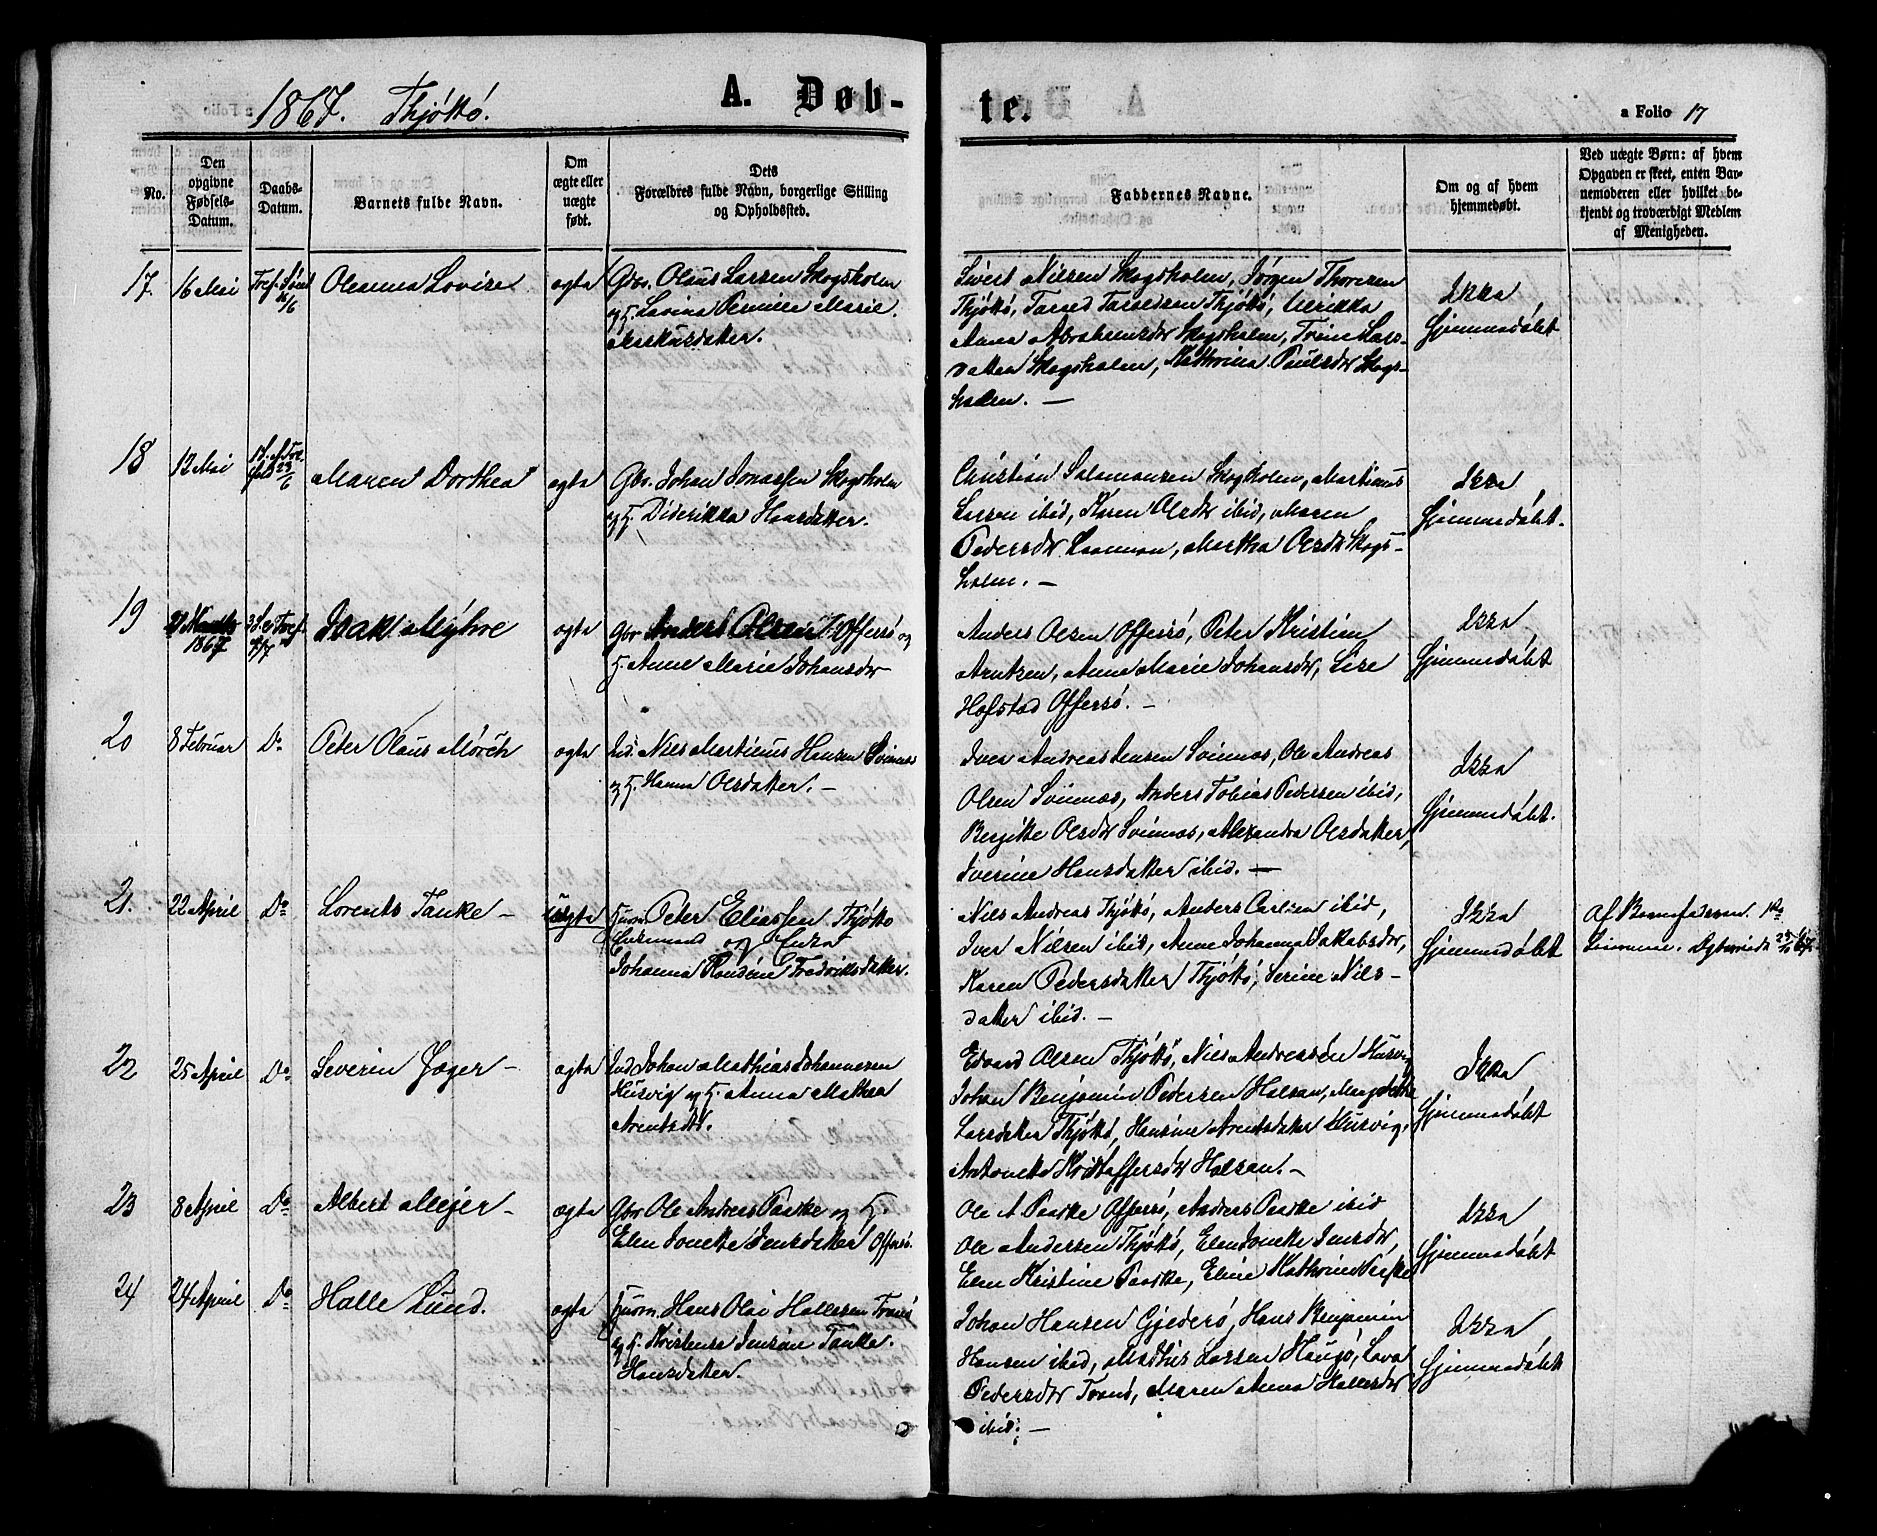 1867. Thjøttø.
A. Døb-
te.
a Folio 17
No.
Den opgivne Fødsels-Datum.
Daabs-Datum.
Barnets fulde Navn.
Om ægte eller uægte født.
Dets Forældres fulde Navn, borgerlige Stilling og Opholdssted.
Faddernes Navne.
Om og af hvem hjemmedøbt.
Ved uægte Børn: af hvem Opgaven er skeet, enten Barnemoderen eller hvilket bekjendt og troværdigt Medlem af Menigheden.
17. 16 Mai Tref. Sønd 16/6 Oleanna Lovise ægte
Gbr. Olaus Larsen Skogsholm
og H. Lavina Pernille Marie
Markusdatter.
Sivert Nilsen Skogsholm, Jørgen Thoresen
Thjøttø, Tarald Taraldsen Thjøttø, Ulrikka
Anna Abrahamsdr Skogsholm, Trine Lars-
datter Skogsholm, Kathrina Paulsdr Skogs-
holm. —
Ikke
Hjemmedøbt
18 13 Mai 1 S. e. Tre-
fold 23/6 Maren Dorthea ægte
Gbr. Johan Jonassen Skogsholm
og H. Diderikka Hansdatter.
Christian Salamonsen Skogsholm, Martinus
Larsen ibid, Karen Olsdr ibid, Maren
Pedersdr , Martha Olsdr Skogs-
holm. —
Ikke
Hjemmedøbt.
19 Marts
1867 3 S. e. Tref.
7/7 Isak Myhre ægte
Gbr Anders Olsen Offersø og
H. Anne Marie Johansdr
Anders Olsen Offersø, Peter Kristian
Arntzen, Anne Marie Johansdr, Lise
Hofstad Offersø. —
Ikke
Hjemmedøbt
20 8 Februar Do Peter Olaus Mørch ægte
Ind. Nils Martinus Hansen Svinnes
og H. Hanna Olsdatter. —
Iver Andreas Jensen Svinnes, Ole Andreas
Olsen Svinnes, Anders Tobias Pedersen ibid,
Bergitte Olsdr Svinnes, Alexandra Olsdatter,
Iverine Hansdatter ibid. —
Ikke
Hjemmedøbt.
21. 22 April Do Lorents Tanke — uægte
Husm. Peter Eliassen Thjøttø
Enkemand og Enke
Johanna Fredriksdatter.
Nils Andreas Thjøttø, Anders Carlsen ibid,
Iver Nilsen ibid, Anne Johanna Jakobsdr,
Karen Pedersdatter Thjøttø, Serine Nils-
datter ibid. —
Ikke
Hjemmedøbt
Af Barnefaderen.
22 25 April Do Severin Jæger — ægte
Ind Johan Mathias Johannesen
Husvig og H. Anna Mathea
Arentsdtr.
Edvard Olsen Thjøttø, Nils Andreassen Husvig
Johan Benjamin Pedersen Halsan,
Larsdatter Thjøttø, Hansine Arentsdatter Husvig,
Antonette Kristoffersdr Halsan. —
Ikke
Hjemmedøbt
23 8 April Do Albert Mejer — ægte
Gbr Ole Andreas Paaske og H.
Elen Jonette Jensdatter Offersø.
Ole A Paaske Offersø, Anders Paaske ibid
Ole Andersen Thjøttø, Elen Jonette Jensdr,
Elen Kristine Paaske, Eline Kathrine
Ikke
Hjemmedøbt
24 24 April Do Halle Lund. ægte
Husm. Hans Olai Hallesen Tranø
og H. Kristense Jensine Tanke
Hansdatter.
Johan Hansen Gjederø, Hans Benjamin
Hansen ibid, Mathis Larsen Haugø, Lava
Pedersdr Tranø, Maren Anna Hallesdr
ibid. —
Ikke
Hjemmedøbt